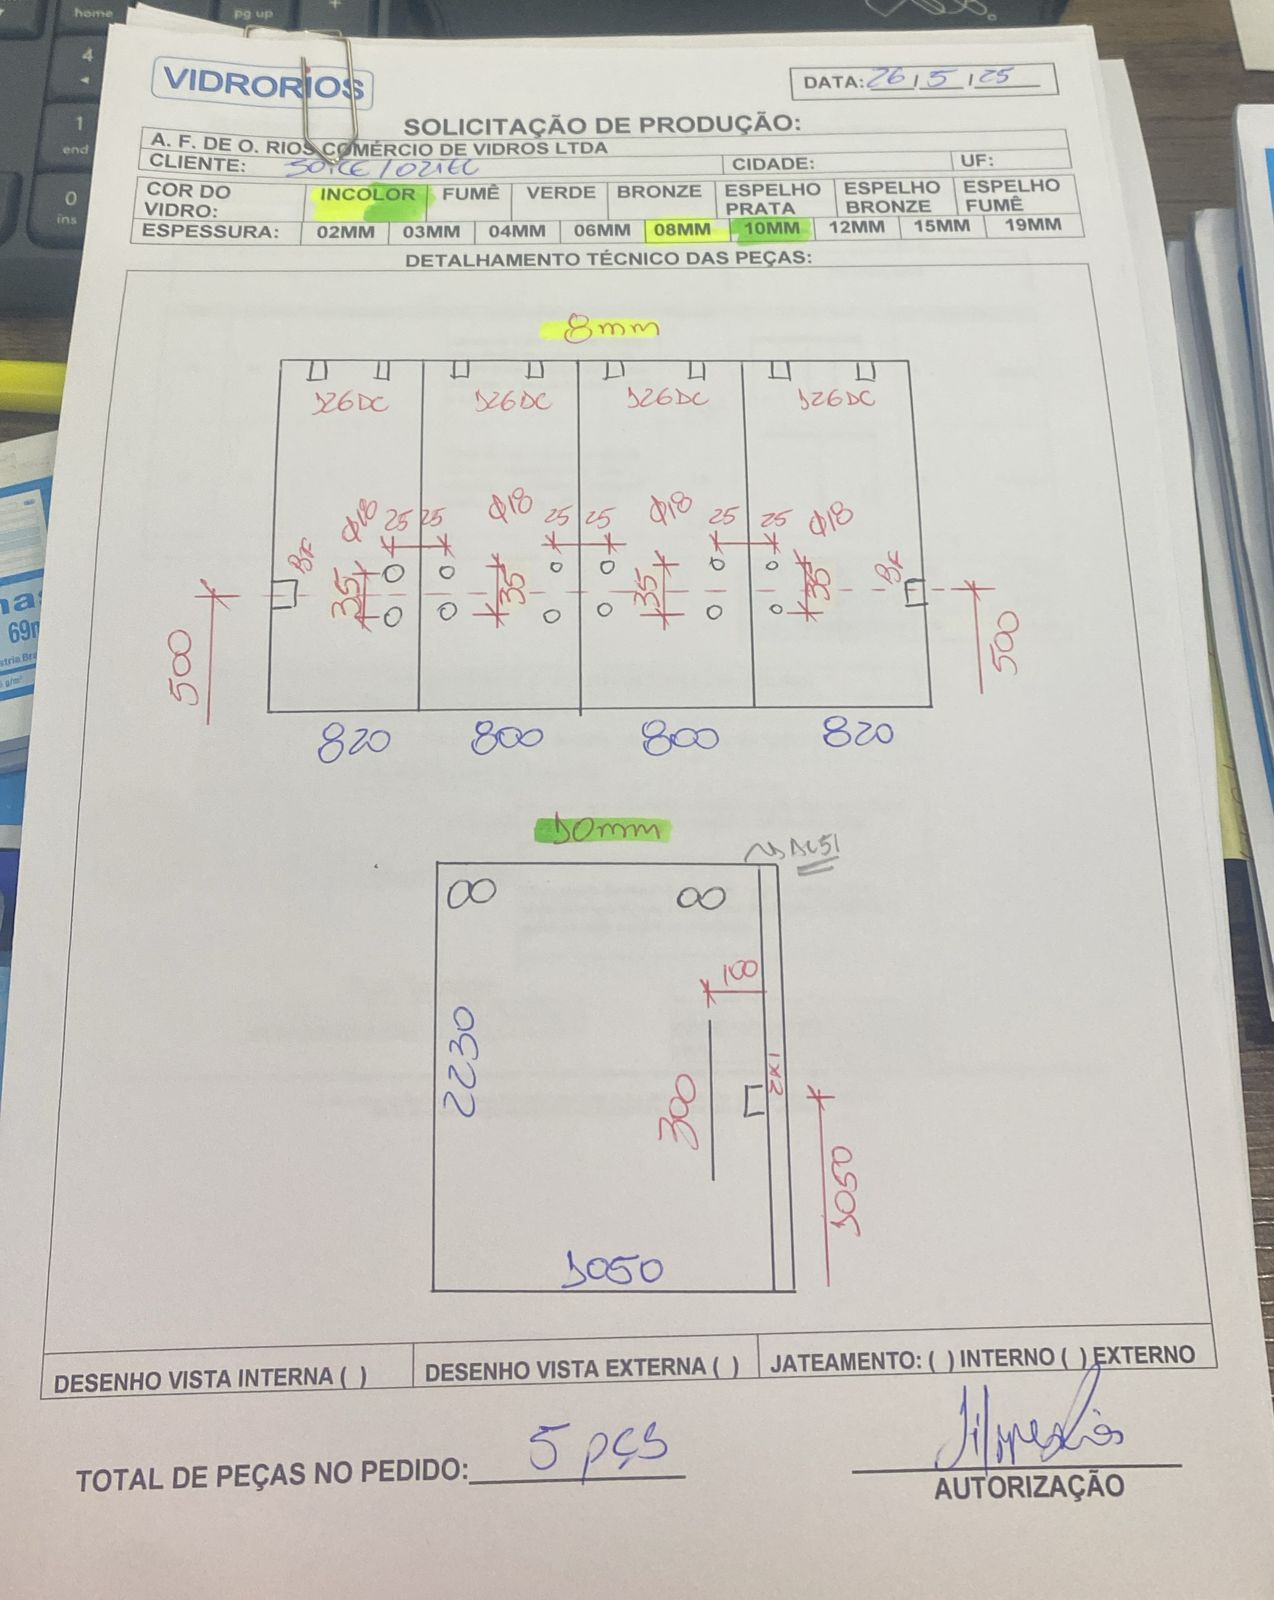 home
pg up
4
1
end
0
ins
VIDRORIOS
DATA: 26/5/25
SOLICITAÇÃO DE PRODUÇÃO:
A. F. DE O. RIOS COMÉRCIO DE VIDROS LTDA
CLIENTE: JOICE / OZIEL CIDADE: UF:
COR DO VIDRO: INCOLOR FUMÊ VERDE BRONZE ESPELHO PRATA ESPELHO BRONZE ESPELHO FUMÊ
ESPESSURA: 02MM 03MM 04MM 06MM 08MM 10MM 12MM 15MM 19MM
DETALHAMENTO TÉCNICO DAS PEÇAS:
8mm
126DC 126DC 126DC 126DC
Φ18 25 25 Φ18 25 25 Φ18 25 25 Φ18
BF 35 35 35 35 BF
500 500
820 800 800 820
10mm
00 00
100
2230
300
2X1
1050
1050
DESENHO VISTA INTERNA ( ) DESENHO VISTA EXTERNA ( ) JATEAMENTO: ( ) INTERNO ( ) EXTERNO
TOTAL DE PEÇAS NO PEDIDO: 5 pçs
AUTORIZAÇÃO